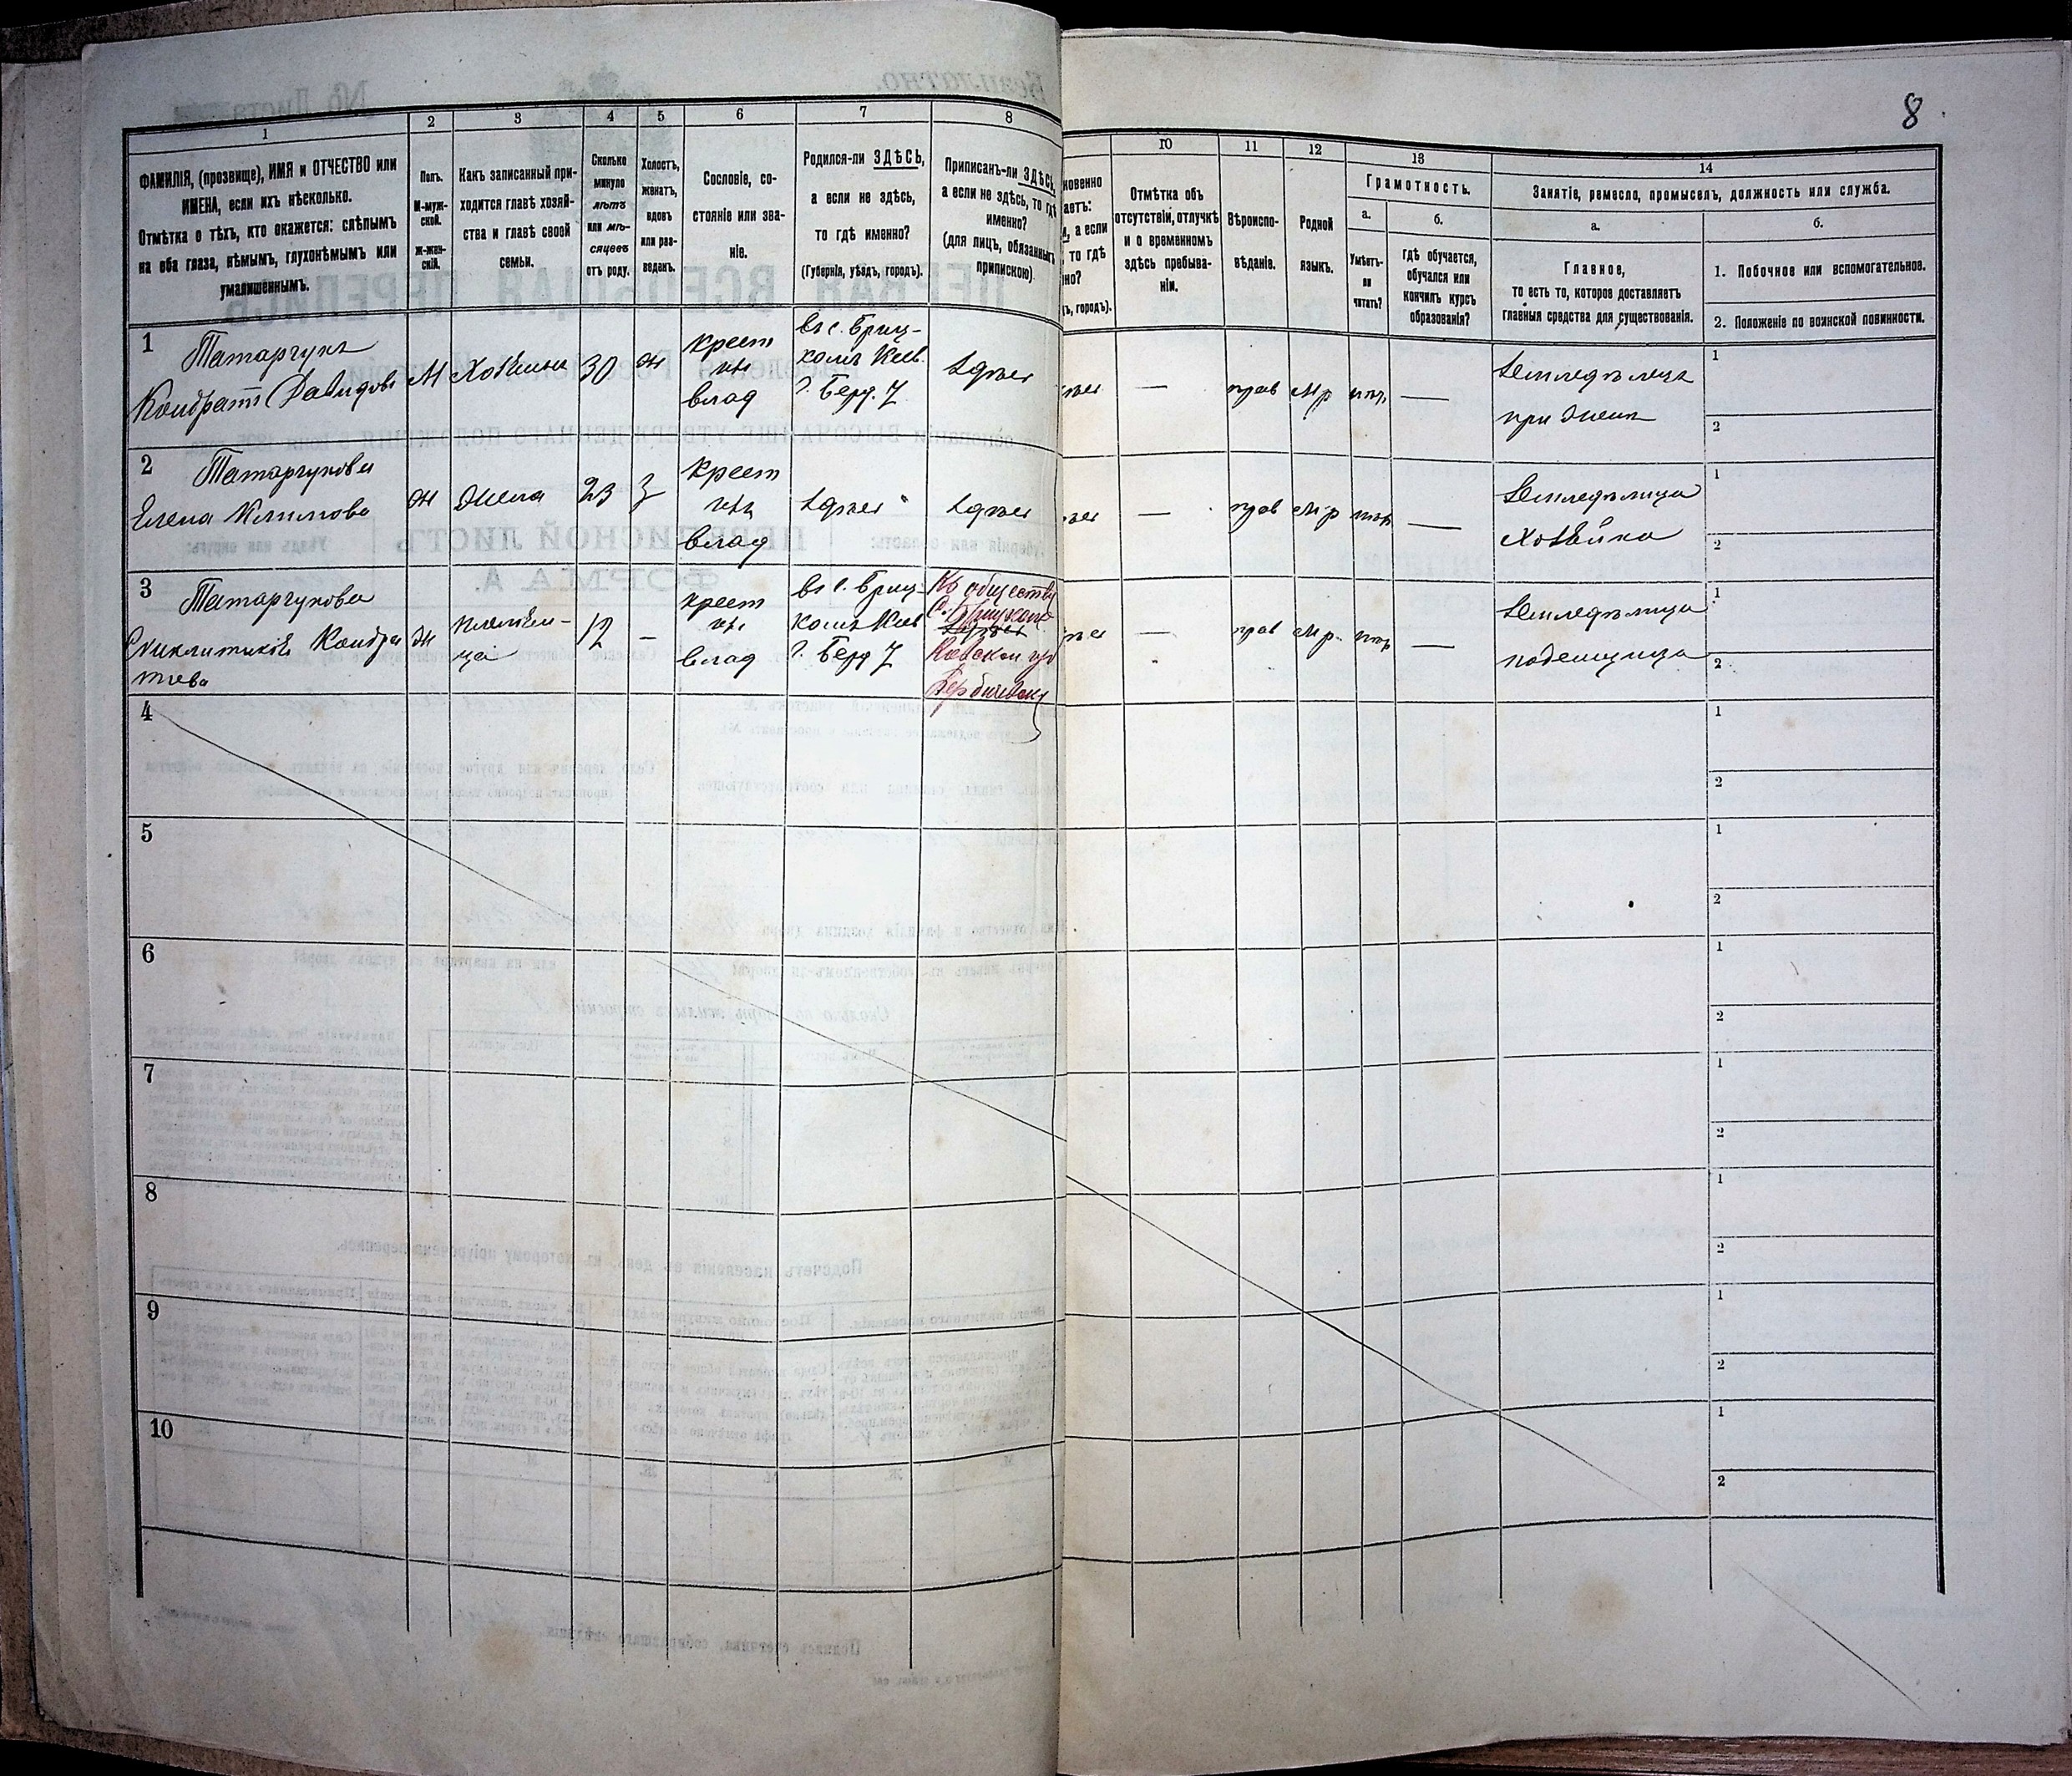 8
1
2
3
4
5
6
7
8
10
11
12
13
14
ФАМИЛІЯ, (прозвище), ИМЯ и ОТЧЕСТВО или
ИМЕНА, если ихъ нѣсколько.
Отмѣтка о тѣхъ, кто окажется: слѣпымъ
на оба глаза, нѣмымъ, глухонѣмымъ или
умалишеннымъ.
Полъ.
М-муж-
ской.
Ж-жен-
скій.
Какъ записанный при-
ходится главѣ хозяй-
ства и главѣ своей
семьи.
Сколько
минуло
лѣтъ
или мѣ-
сяцевъ
отъ роду.
Холостъ,
женатъ,
вдовъ
или раз-
веденъ.
Сословіе, со-
стояніе или зва-
ніе.
Родился-ли ЗДѢСЬ,
а если не здѣсь,
то гдѣ именно?
(Губернія, уѣздъ, городъ).
Приписанъ-ли ЗДѢСЬ,
а если не здѣсь, то гдѣ
именно?
(для лицъ, обязанныхъ
припискою)
новенно
аетъ:
а если
то гдѣ
но?
ъ, городъ).
Отмѣтка объ
отсутствіи, отлучкѣ
и о временномъ
здѣсь пребыва-
ніи.
Вѣроиспо-
вѣданіе.
Родной
языкъ.
Грамотность.
а.
б.
Умѣетъ-
ли
читать?
гдѣ обучается,
обучался или
кончилъ курсъ
образованія?
Занятіе, ремесло, промыселъ, должность или служба.
а.
б.
Главное,
то есть то, которое доставляетъ
главныя средства для существованія.
1. Побочное или вспомогательное.
2. Положеніе по воинской повинности.
1
Татарчукъ
Кондратъ Давидовъ
М
Хозяинъ
30
ж
крест
влад
въ с. Бриц-
комъ Кіев.
г. Берд. У
здѣсь
—
прав
Мр
нѣтъ
—
Земледѣлецъ
при женѣ
1
2
2
Татарчукова
Елена Климова
ж
жена
23
З
крест
влад
здѣсь
здѣсь
—
прав
Мр
нѣтъ
—
Земледѣлица
Хозяйка
1
2
3
Татарчукова
Кондра
тьева
ж
племян-
ца
12
–
крест
влад
въ с. Бриц-
комъ Кіев
г. Берд У
Къ обществу
с. Брицкаго
Бердичевск
—
прав
Мр.
нѣтъ
—
Земледѣлица
поденщица
1
2
4
1
2
5
1
2
6
1
2
7
1
2
8
1
2
9
1
2
10
1
2